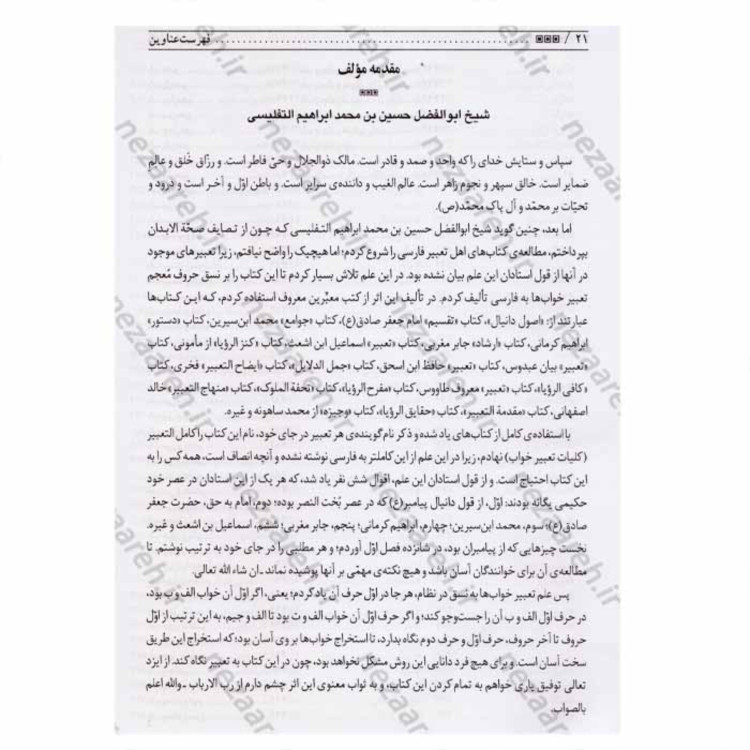 ۲۱ / فهرست عناوین
مقدمه مؤلف
شیخ ابوالفضل حسین بن محمد ابراهیم التفلیسی
سپاس و ستایش خدای را که واحد و صمد و قادر است. مالک ذوالجلال و حیّ فاطر است. و رزّاق خَلق و عالِم
ضمایر است. خالق سپهر و نجوم زاهر است. عالم الغیب و داننده‌ی سرایر است. و باطن اوّل و آخر است و درود و
تحیّات بر محمّد و آل پاک محمّد(ص).
اما بعد، چنین گوید شیخ ابوالفضل حسین بن محمد ابراهیم التفلیسی که چون از تصایف صحّة الابدان
بپرداختم، مطالعه‌ی کتاب‌های اهل تعبیر فارسی را شروع کردم؛ اما هیچیک را واضح نیافتم، زیرا تعبیرهای موجود
در آنها از قول استادان این علم بیان نشده بود. در این علم تلاش بسیار کردم تا این کتاب را بر نسق حروف مُعجم
تعبیر خواب‌ها به فارسی تألیف کردم. در تألیف این اثر از کتب معبّرین معروف استفاده کردم، که این کتاب‌ها
عبارتند از: «اصول دانیال»، کتاب «تقسیم» امام جعفر صادق(ع)، کتاب «جوامع» محمد ابن‌سیرین، کتاب «دستور»
ابراهیم کرمانی، کتاب «ارشاد» جابر مغربی، کتاب «تعبیر» اسماعیل ابن اشعث، کتاب «کنز الرؤیا» از مأمونی، کتاب
«تعبیر» بیان عبدوس، کتاب «تعبیر» حافظ ابن اسحق، کتاب «جمل الدلایل»، کتاب «ایضاح التعبیر» فخری، کتاب
«کافی الرؤیا»، کتاب «تعبیر» معروف طاووس، کتاب «مفرح الرؤیا»، کتاب «تحفة الملوک»، کتاب «منهاج التعبیر» خالد
اصفهانی، کتاب «مقدمة التعبیر»، کتاب «حقایق الرؤیا»، کتاب «وجیزه» از محمد ساهونه و غیره.
با استفاده‌ی کامل از کتاب‌های یاد شده و ذکر نام گوینده‌ی هر تعبیر در جای خود، نام این کتاب را کامل التعبیر
(کلیات تعبیر خواب) نهادم، زیرا در این علم از این کاملتر به فارسی نوشته نشده و آنچه انصاف است، همه کس را به
این کتاب احتیاج است. و از قول استادان این علم، اقوال شش نفر یاد شد، که هر یک از این استادان در عصر خود
حکیمی یگانه بودند: اوّل، از قول دانیال پیامبر(ع) که در عصر بُخت النصر بوده؛ دوم، امام به حق، حضرت جعفر
صادق(ع)؛ سوم، محمد ابن‌سیرین؛ چهارم، ابراهیم کرمانی؛ پنجم، جابر مغربی؛ ششم، اسماعیل بن اشعث و غیره.
نخست چیزهایی که از پیامبران بود، در شانزده فصل اوّل آوردم؛ و هر مطلبی را در جای خود به ترتیب نوشتم. تا
مطالعه‌ی آن برای خوانندگان آسان باشد و هیچ نکته‌ی مهمّی بر آنها پوشیده نماند ـ ان شاء الله تعالی.
پس علم تعبیر خواب‌ها به نسق در نظام، هر جا در اوّل حرف آن یاد کردم؛ یعنی، اگر اوّل آن خواب الف و ب بود،
در حرف اوّل الف و ب آن را جست‌وجو کنند؛ و اگر حرف اوّل آن خواب الف و ت بود تا الف و جیم، به این ترتیب از اوّل
حروف تا آخر حروف، حرف اوّل و حرف دوم نگاه بدارد، تا استخراج خواب‌ها بر وی آسان بود؛ که استخراج این طریق
سخت آسان است. و برای هیچ فرد دانایی این روش مشکل نخواهد بود، چون در این کتاب به تعبیر نگاه کند. از ایزد
تعالی توفیق یاری خواهم به تمام کردن این کتاب، و به ثواب معنوی این اثر چشم دارم از رب الارباب ـ والله اعلم
بالصواب.
nezaareh.ir